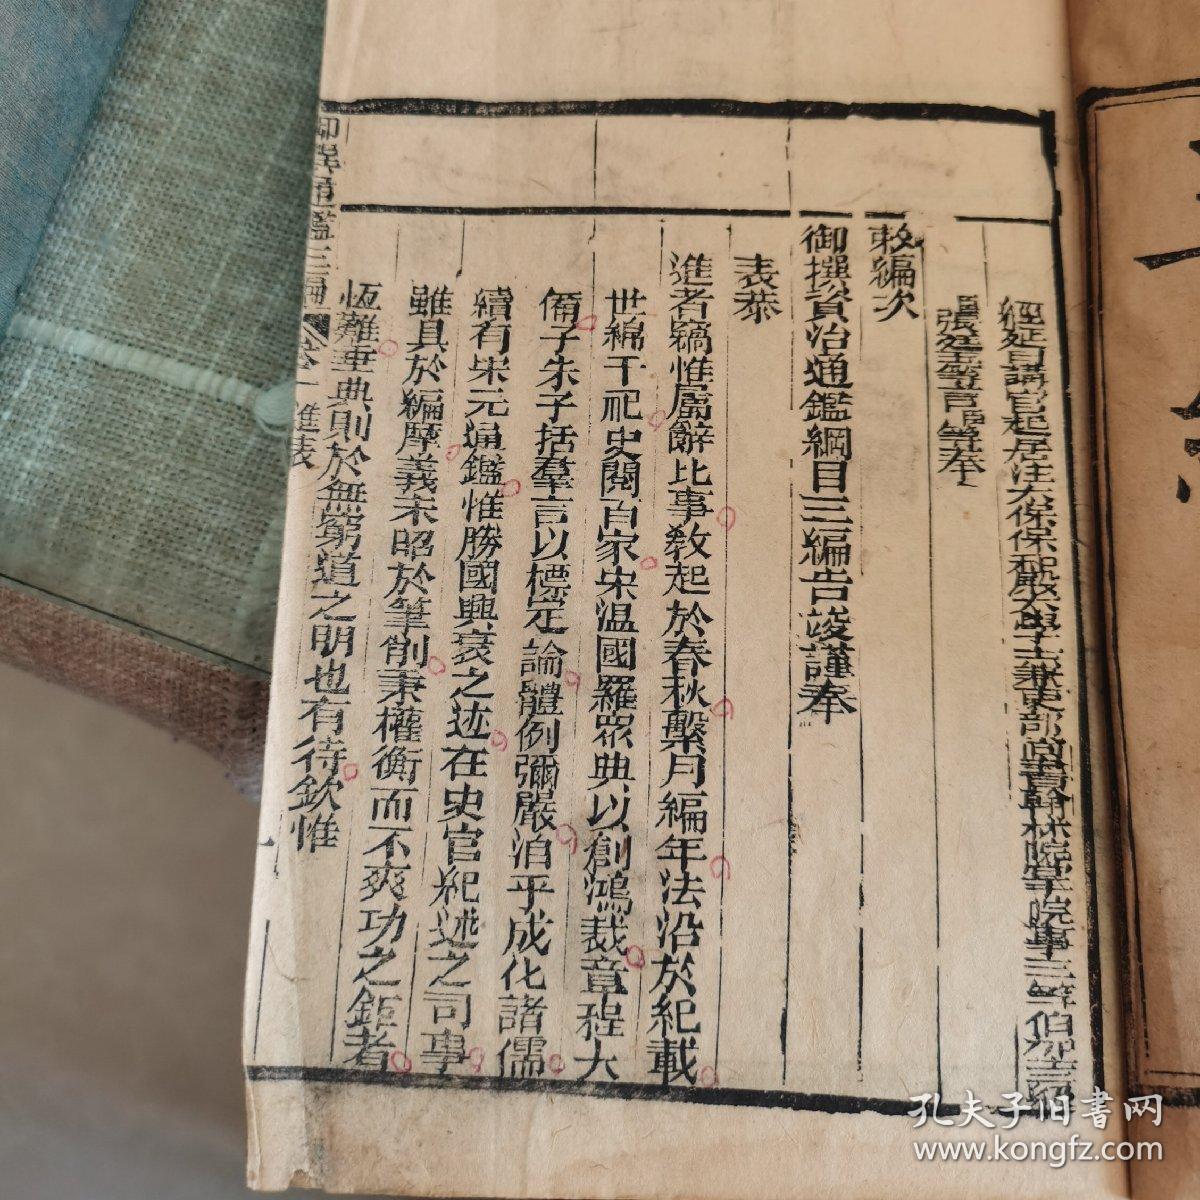 經筵日講官起居注太保保和殿大學士兼吏部尚書翰林院掌院事三等伯加三級
張廷玉等奉
敕編次
御撰資治通鑑綱目三編告竣謹奉
表恭
進者竊惟屬辭比事教起於春秋繫月編年法沿於紀載
世綿千祀史閱百家宋溫國羅眾典以創鴻裁章程大
備子朱子括羣言以標定論體例彌嚴洎乎成化諸儒
續有宋元通鑑惟勝國興衰之迹在史官紀述之司事
雖具於編摩義未昭於筆削秉權衡而不爽功之鉅者
恆難垂典則於無窮道之明也有待欽惟
御撰通鑑三編 卷一 進表 一
孔夫子旧书网
www.kongfz.com